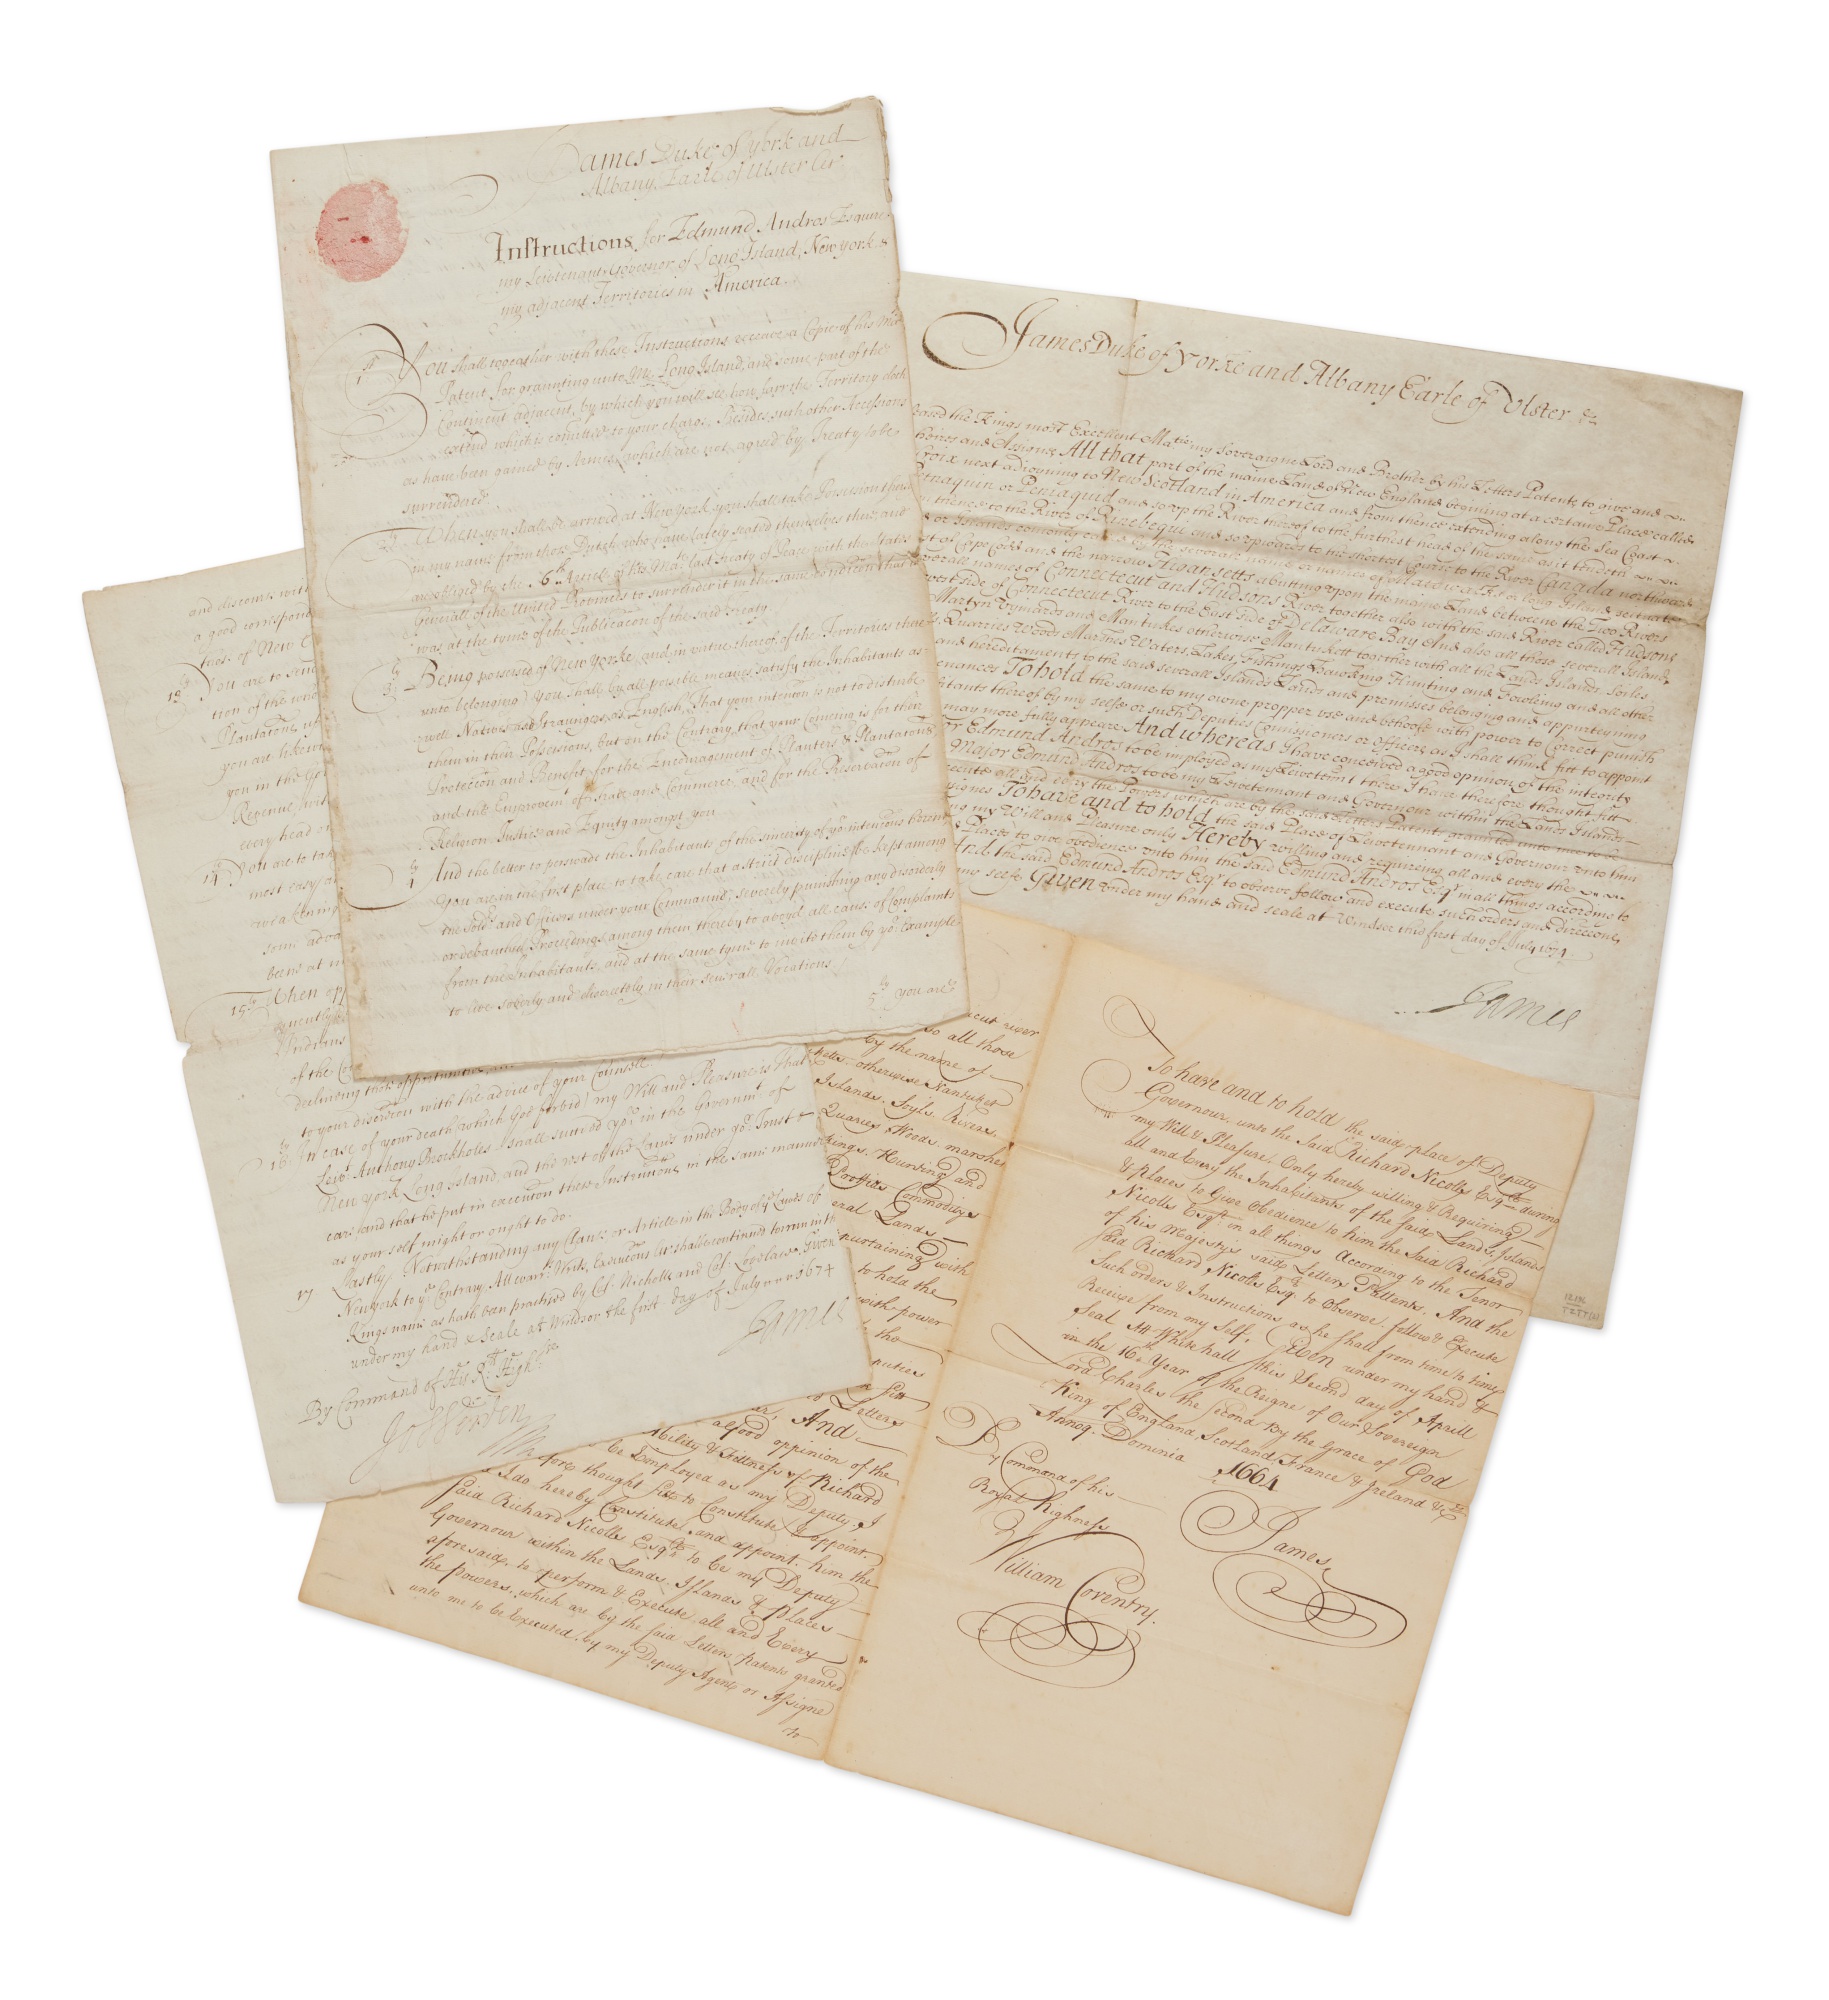 James Duke of York and
Albany, Earle of Ulster &c.
Instructions for Edmund Andros Esquire
my Leivtenant & Governor of Long Island, New york &
my adjacent Territories in America.
1st You shall together with these Instructions receave a Copie of his Maties
Patent for graunting unto Me Long Island, and some part of the
Continent adjacent, by which you will see how farr the Territory doth
extend which is comitted to your charge, Besides such other Accessions
as have been gained by Armes, which are not agreed by Treaty to be
surrendered.
2ly When you shall be arrived at New york, you shall take Possession thereof
in my name from those Dutch who have lately seated themselves there, and
are obliged by the 6th Article of his Maties last Treaty of Peace with the States
Generall of the United Provinces to surrender it in the same condition that it
was at the tyme of the Publicacon of the said Treaty.
3ly Being possessed of New Yorke, and in vertue thereof, of the Territories there
unto belonging, you shall by all possible meanes satisfy the Inhabitants as
well Natives as Straungers, as English, That your intention is not to disturbe
them in their Possessions, but on the Contrary, that your Comeing is for their
Proteccon and Benefit, for the Encouragement of Planters & Plantations
and the Emprovemt of Trade and Commerce, and for the Preservation of
Religion Justice and Equity amongst you
4ly And the better to perswade the Inhabitants of the sincerity of yor intencons herein
You are in the first place to take care that a strict discipline be kept among
the Soldrs and Officers under your Command, severely punishing any disorderly
or debauched Proceedings among them thereby to avoyd all cause of Complaints
from the Inhabitants, and at the same tyme to invite them by yor Example
to live soberly and discreetely in their severall Vocations
5ly you are
James Duke of Yorke and Albany Earle of Ulster &c
the Kings most Excellent Matie my Soveraigne Lord and Brother by his Letters Patents to give and
heires and Assignes All that part of the maine Land of New England begining at a certaine Place called
Croix next adioyning to New Scotland in America and from thence extending along the Sea Coast
or Pemaquid and so up the River thereof to the furthest head of the same as it tendeth
thence to the River of Kinebequi and so upwards to the shortest Course to the River Canada northward
or Islands comonly called by the severall name or names of Matowacks or long Island scituate
of Cape Codd and the narrow Higansetts abutting upon the maine Land betweene the Two Rivers
names of Connecticut and Hudsons River together also with the said River called Hudsons
West side of Connectecut River to the East side of Delaware Bay And also all those severall Islands
Martyn Vynyards and Mantukes otherwise Mantukett together with all the Lands Islands Soiles
Quarries Woods Marshes Waters, Lakes, Fishings Hawking Hunting and Fowleing and all other
and hereditaments to the said severall Islands Lands and premisses belonging and apparteyning
To hold the same to my owne propper use and behoofe with power to Correct punish
thereof by my selfe or such Deputies Comissioners or Officers as I shall think fitt to appoint
may more fully appeare And whereas I have conceived a good opinion of the integrity
Edmund Andros to be imployed as my Leivetennt there I have therefore thought fitt
Major Edmund Andros to be my Leivetennant and Governour within the Lands Islands
all and every the Powers which are by the said Letters Patent graunted unto me to be
To have and to hold the said Place of Leivetennant and Governour unto him
my Will and Pleasure only Hereby willing and requiring all and every the
Places to give obedience unto him the said Edmund Andros Esqr in all things according to
And the said Edmund Andros Esqr to observe follow and execute such orders and direccons
my selfe Given under my hand and seale at Windsor this first day of July 1674
James
and discourse with
a good correspond
13ly You are to
tion of the
Plantations
you are likewise
you in the
Revenue
every head
14ly You are to take
most easy
15ly When opp
Indians
of the
declineing those opportunities
to your discretion with the advice of your Counsell.
16ly In case of your death (which God forbid) my Will and Pleasure is that
Leivt Anthony Brockholes shall succeed you in the Governmt of
New york Long Island, and the rest of the Lands under yor Trust &
care and that he put in execution these Instructions in the same manner
as your self might or ought to do.
17 Lastly Notwithstanding any Clause or Article in the Body of ye Lawes of
New york to ye Contrary, All warrts Writs, Execucons &c shall continued to run in the
Kings name as hath been practised by Col. Nicholls and Col. Lovelace. Given
under my hand & Seale at Windsor the first day of July 1674
James
By Command of His Rll Highsse
Jo: Werden
river
so all those
by the name of
otherwise Nantuket
Islands, Soyls, Rivers,
Quaries, Woods, marshes
Hunting and
Proffitts Commoditys
Lands
purtaining with
to hold the
with power
the
puties
fitt
Letters
And
a good oppinion of the
bility & Fittness of Richard
be Employed as my Deputy, I
fore thought fitt to Constitute & appoint
I do hereby Constitute and appoint him the
said Richard Nicolls Esqr to be my Deputy
Governour within the Lands, Islands & places
aforesaid, to perform & Execute all and Every
the powers, which are by the said Letters Patents granted
unto me to be Executed, by my Deputy Agent or Assigne
to
To have and to hold the said place of Deputy
Governour, unto the Said Richard Nicolls Esqr during
my Will & Pleasure, Only hereby willing & Requiring
all and Every the Inhabitants of the said Lands, Islands
& places to Give Obedience to him the Said Richard
Nicolls Esqr in all things According to the Tenor
of his Majestys said Letters Pattents, And the
said Richard Nicolls Esqr to Observe, follow & Execute
Such orders & Instructions as he shall from time to time
Receive from my Self, Given under my hand &
Seal Att Whitehall this Second day of Aprill
in the 16th Year of the Reigne of Our Sovereign
Lord Charles the Second By the Grace of God
King of England, Scotland, France & Ireland &c
Annoq. Dominia 1664
By Command of his
Royal Highness
William Coventry.
James